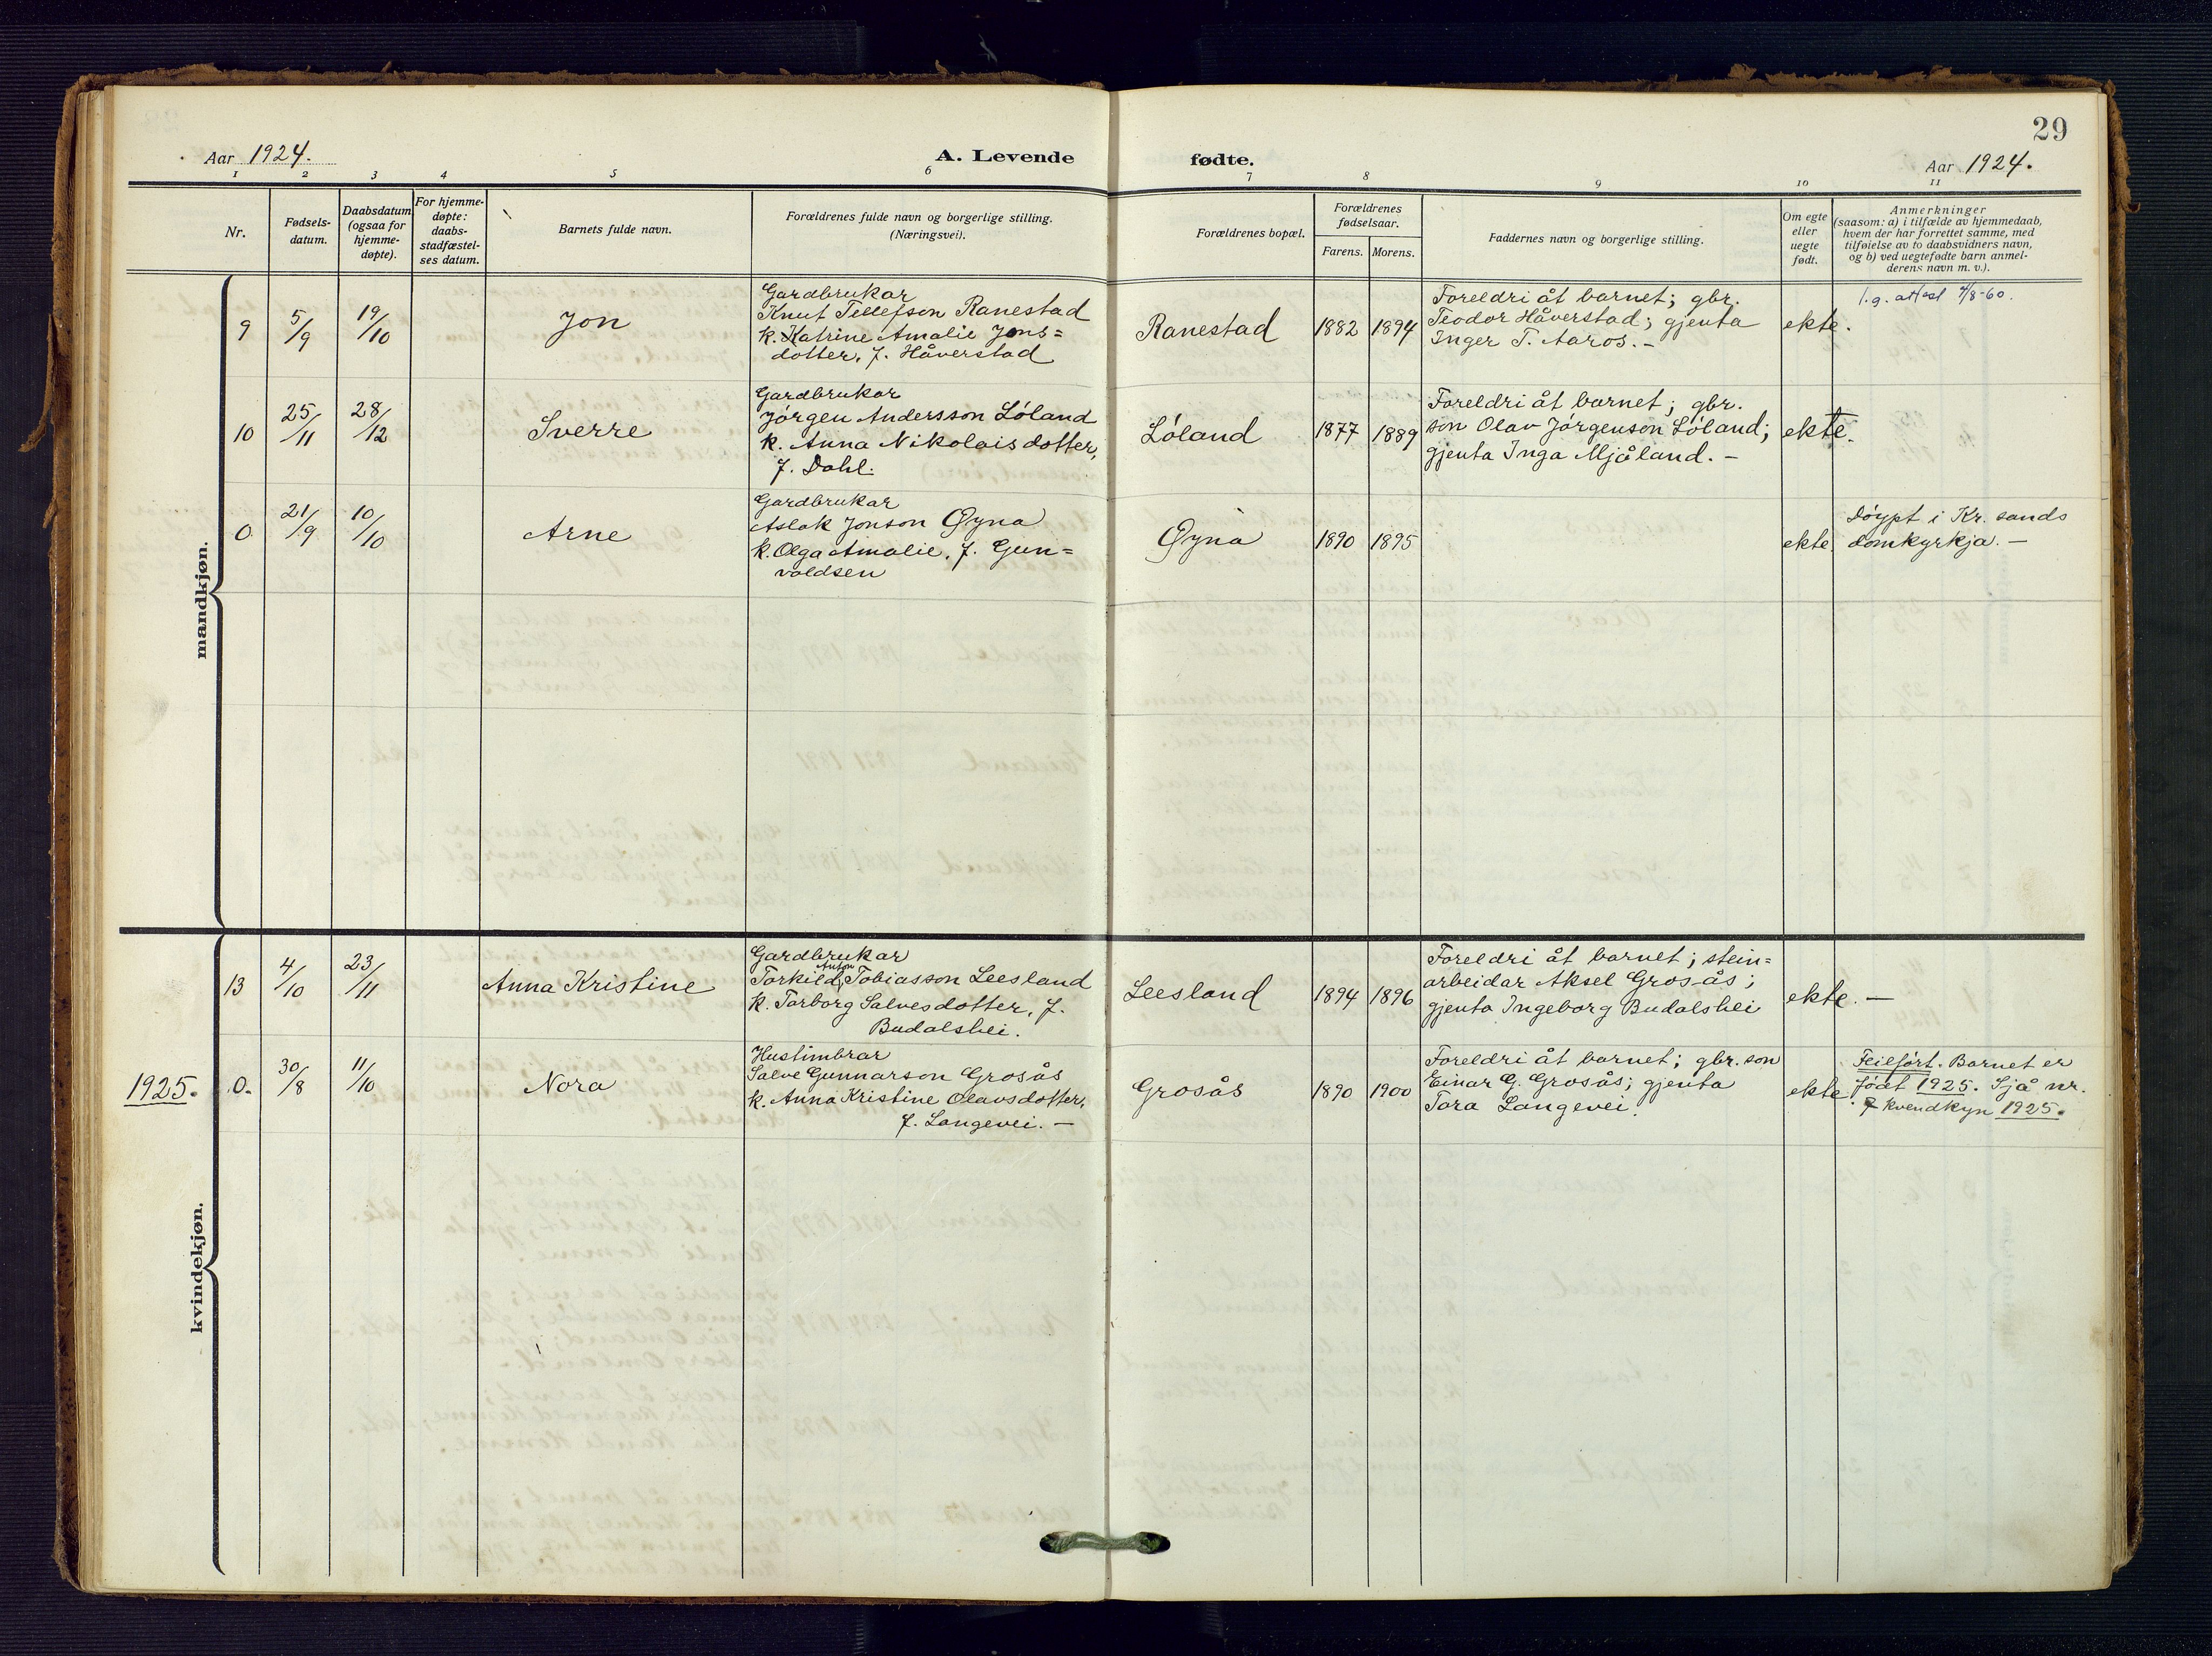 29
Aar 1924.
A. Levende fødte.
Aar 1924.
1 2 3 4 5 6 7 8 9 10 11
Nr.
Fødsels-
datum.
Daabsdatum
(ogsaa for
hjemme-
døpte).
For hjemme-
døpte:
daabs-
stadfæstel-
ses datum.
Barnets fulde navn.
Forældrenes fulde navn og borgerlige stilling.
(Næringsvei).
Forældrenes bopæl.
Forældrenes
fødselsaar.
Farens. Morens.
Faddernes navn og borgerlige stilling.
Om egte
eller
uegte
født.
Anmerkninger
(saasom: a) i tilfælde av hjemmedaab,
hvem der har forrettet samme, med
tilføielse av to daabsvidners navn,
og b) ved uegtefødte barn anmel-
derens navn m. v.).
mandkjøn.
9
5/9
19/10
Jon
Gardbrukar
Knut Tellefson Ranestad
k. Katrine Amalie Jons=
dotter, f. Håverstad
Ranestad
1882 1894
Foreldri åt barnet; gbr.
Teodor Håverstad; gjenta
Inger T. Aaros. –
ekte.
l.g. attest 4/8-60.
10
25/11
28/12
Sverre
Gardbrukar
Jörgen Andersson Löland
k. Anna Nikolaisdotter,
f. Dahl.
Löland
1877 1889
Foreldri åt barnet; gbr.
son Olav Jörgenson Löland;
gjenta Inga Mjåland. –
ekte.
0
21/9
10/10
Arne
Gardbrukar
Aslak Jonson Øyna
k. Olga Amalie, f. Gun=
valdsen
Øyna
1890 1895
ekte.
Döypt i Kr. sands
domkyrkja. –
kvindekjøn.
13
4/10
23/11
Anna Kristine
Gardbrukar
Anton
Torkild Tobiasson Leesland
k. Torborg Salvesdotter, f.
Budalshei.
Leesland
1894 1896
Foreldri åt barnet; stein=
arbeidar Aksel Gros-ås;
gjenta Ingeborg Budalshei
ekte. –
1925.
0.
30/8
11/10
Nora
Hustimbrar
Salve Gunnarson Grosås
k. Anna Kristine Olavsdotter,
f. Langevei. –
Grosås
1890 1900
Foreldri åt barnet; gbr. son
Einar G. Grosås; gjenta
Tora Langevei.
ekte.
Feilfört. Barnet er
födt 1925. Sjå nr.
7 kvendkyn 1925.